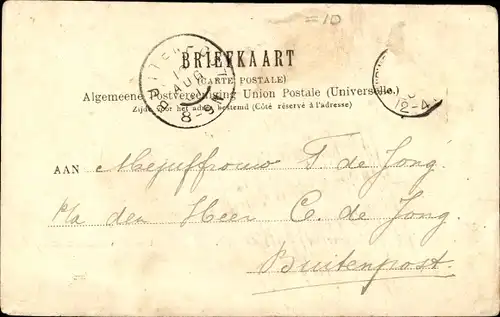 =10
BRIEFKAART
(CARTE POSTALE)
Algemeene Postvereeniging Union Postale (Universelle.)
Zijde voor het adres bestemd (Côté réservé à l'adresse)
AAN Mejuffrouw T de Jong
p/a den Heer C. de Jong.
Buitenpost.
AUG
12-4